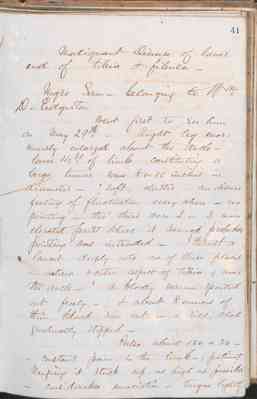 41
Malignant Disease of lower
end of Tibia & fibula -
Negro Sam - belonging to Mr
D. Edgerton
Went first to see him
on May 29th - Right leg enor-
mously enlarged about the
lower of limb constituting a
large tumor 8 or 10 inches in
diameter - soft, elastic - an obscure
feeling of fluctuation every where - no
pointing - the skin over 2 or 3 more
elevated points where it seemed probable
pointing was intended - Thrust a
lancet deeply into one of these places
- aspect of tibia, near
- A bloody serum spurted
out freely - & about 8 ounces of
thin blood ran out - & this
gradually stopped -
Pulse about 120 or 30 -
- constant pain in the limb, patient
keeping it stuck up as high as possible
- considerable emaciation - tongue lightly